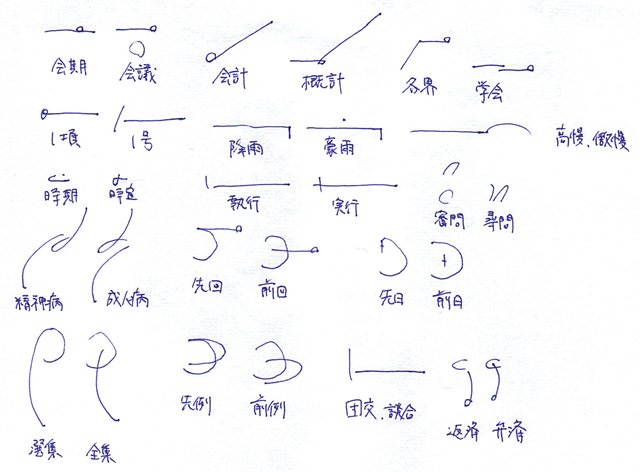 会期 会議 会計 概計 各界 学会
1項 1号 降雨 豪雨 高慢、傲慢
時期 時定 執行 実行 審問 尋問
精神病 成人病 先回 前回 先日 前日
選集 全集 先例 前例 団交、談合 返済 弁済